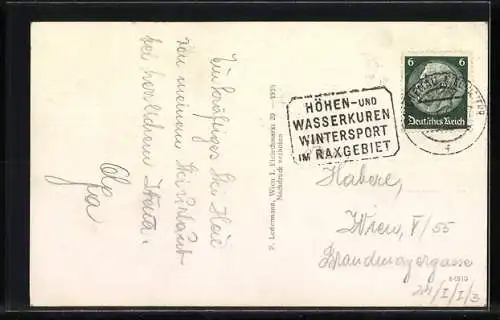 Ein kräftiges Ski Heil
von meinem Skiurlaub
bei herrlichem Wetter.
Olga
P. Ledermann, Wien I, Fleischmarkt 20 —1939
Nachdruck verboten
HÖHEN- UND
WASSERKUREN
WINTERSPORT
IM RAXGEBIET
6 6
Deutsches Reich
Haberl,
Wien, V/55
Brandmayergasse
24/I/I/3